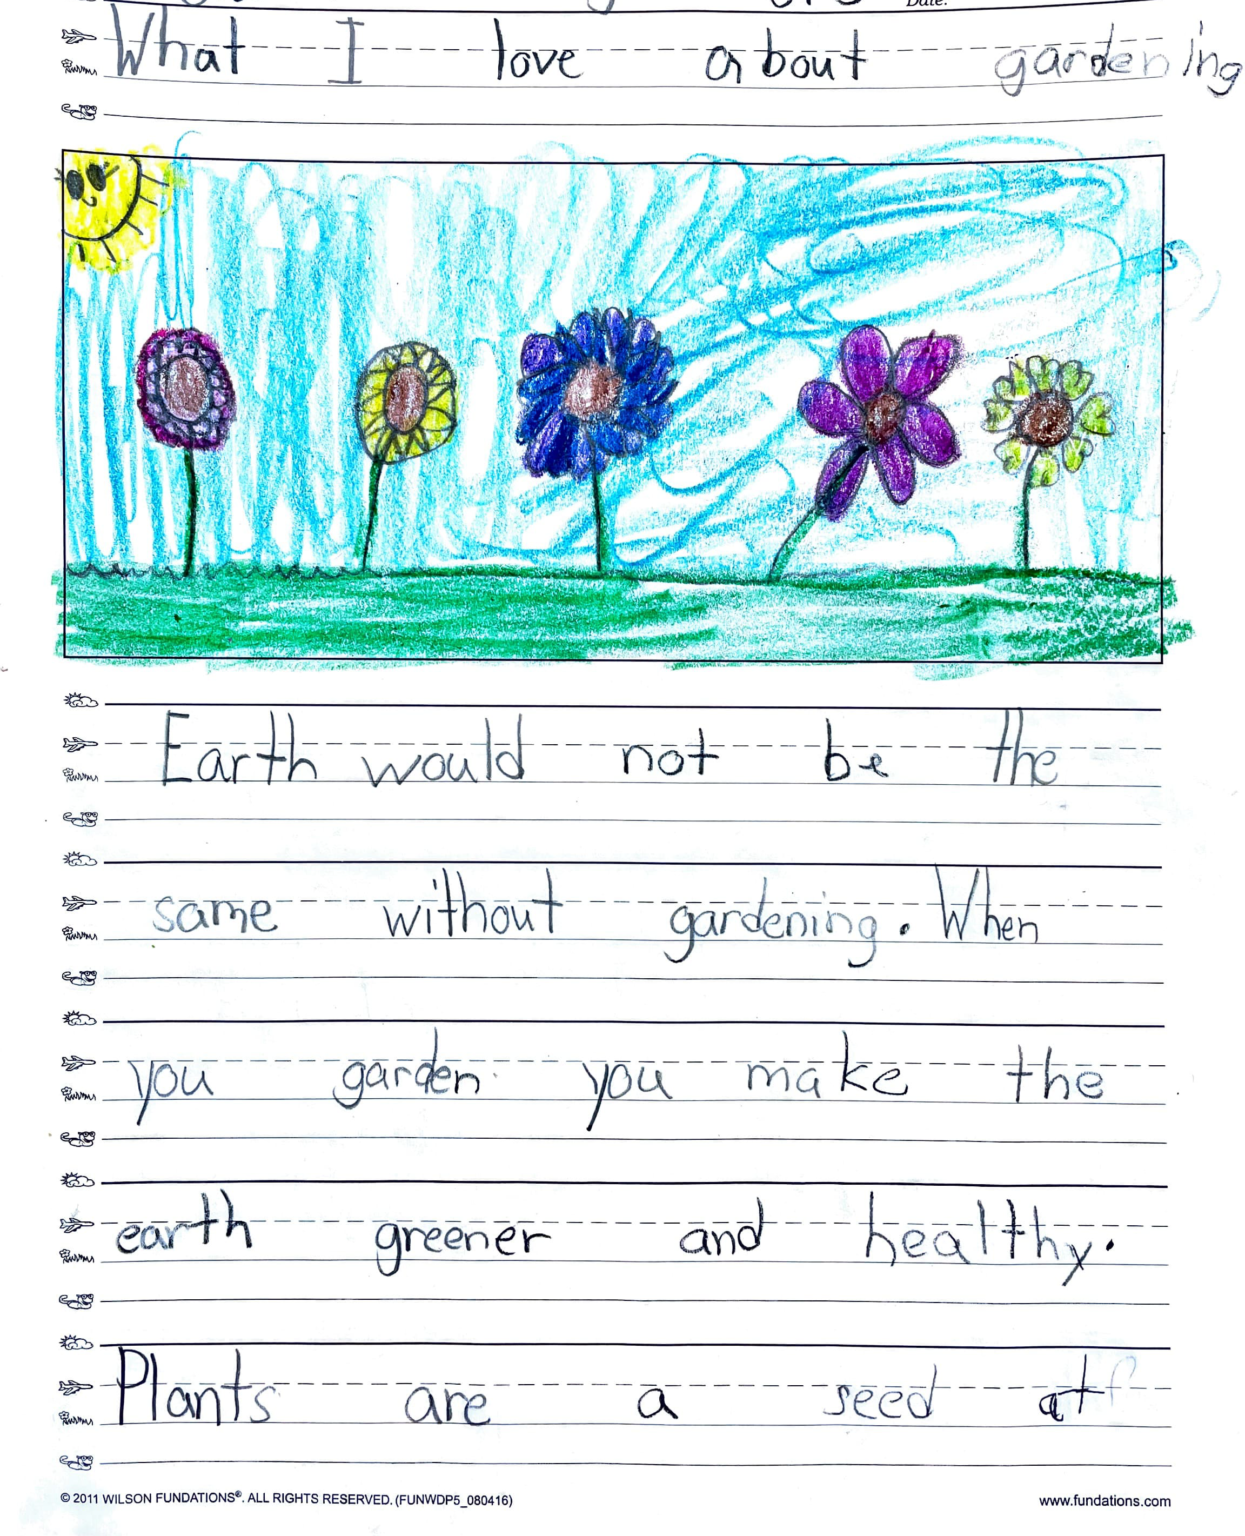 Date:
What I love about gardening
Earth would not be the
same without gardening. When
you garden you make the
earth greener and healthy.
Plants are a seed at
© 2011 WILSON FUNDATIONS®. ALL RIGHTS RESERVED. (FUNWDP5_080416) www.fundations.com